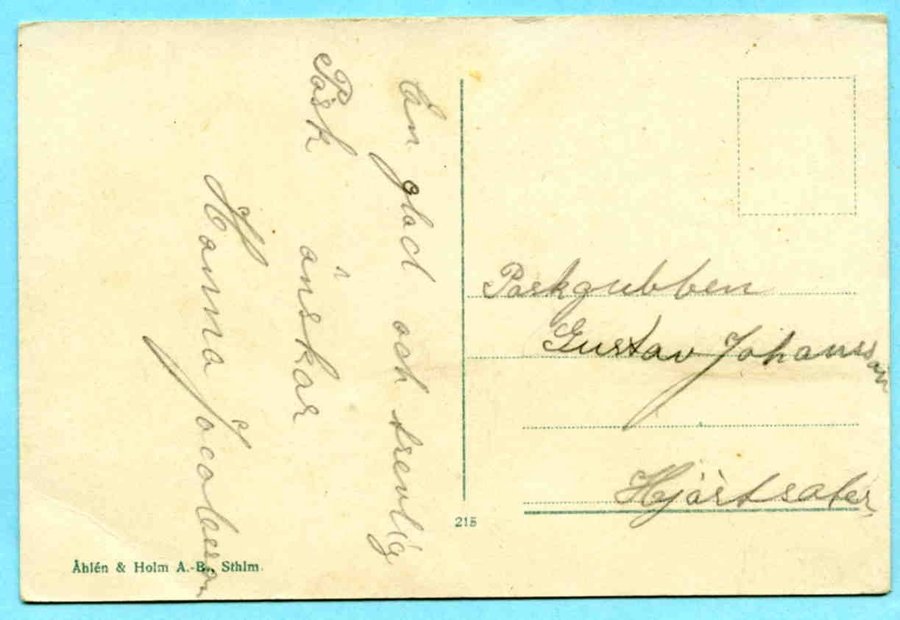 En glad och trevlig
Påsk önskar
Hanna Jacobsson
Påskgubben
Gustav Johansson
Hjärtsäter
215
Åhlén & Holm A.-B., Sthlm.